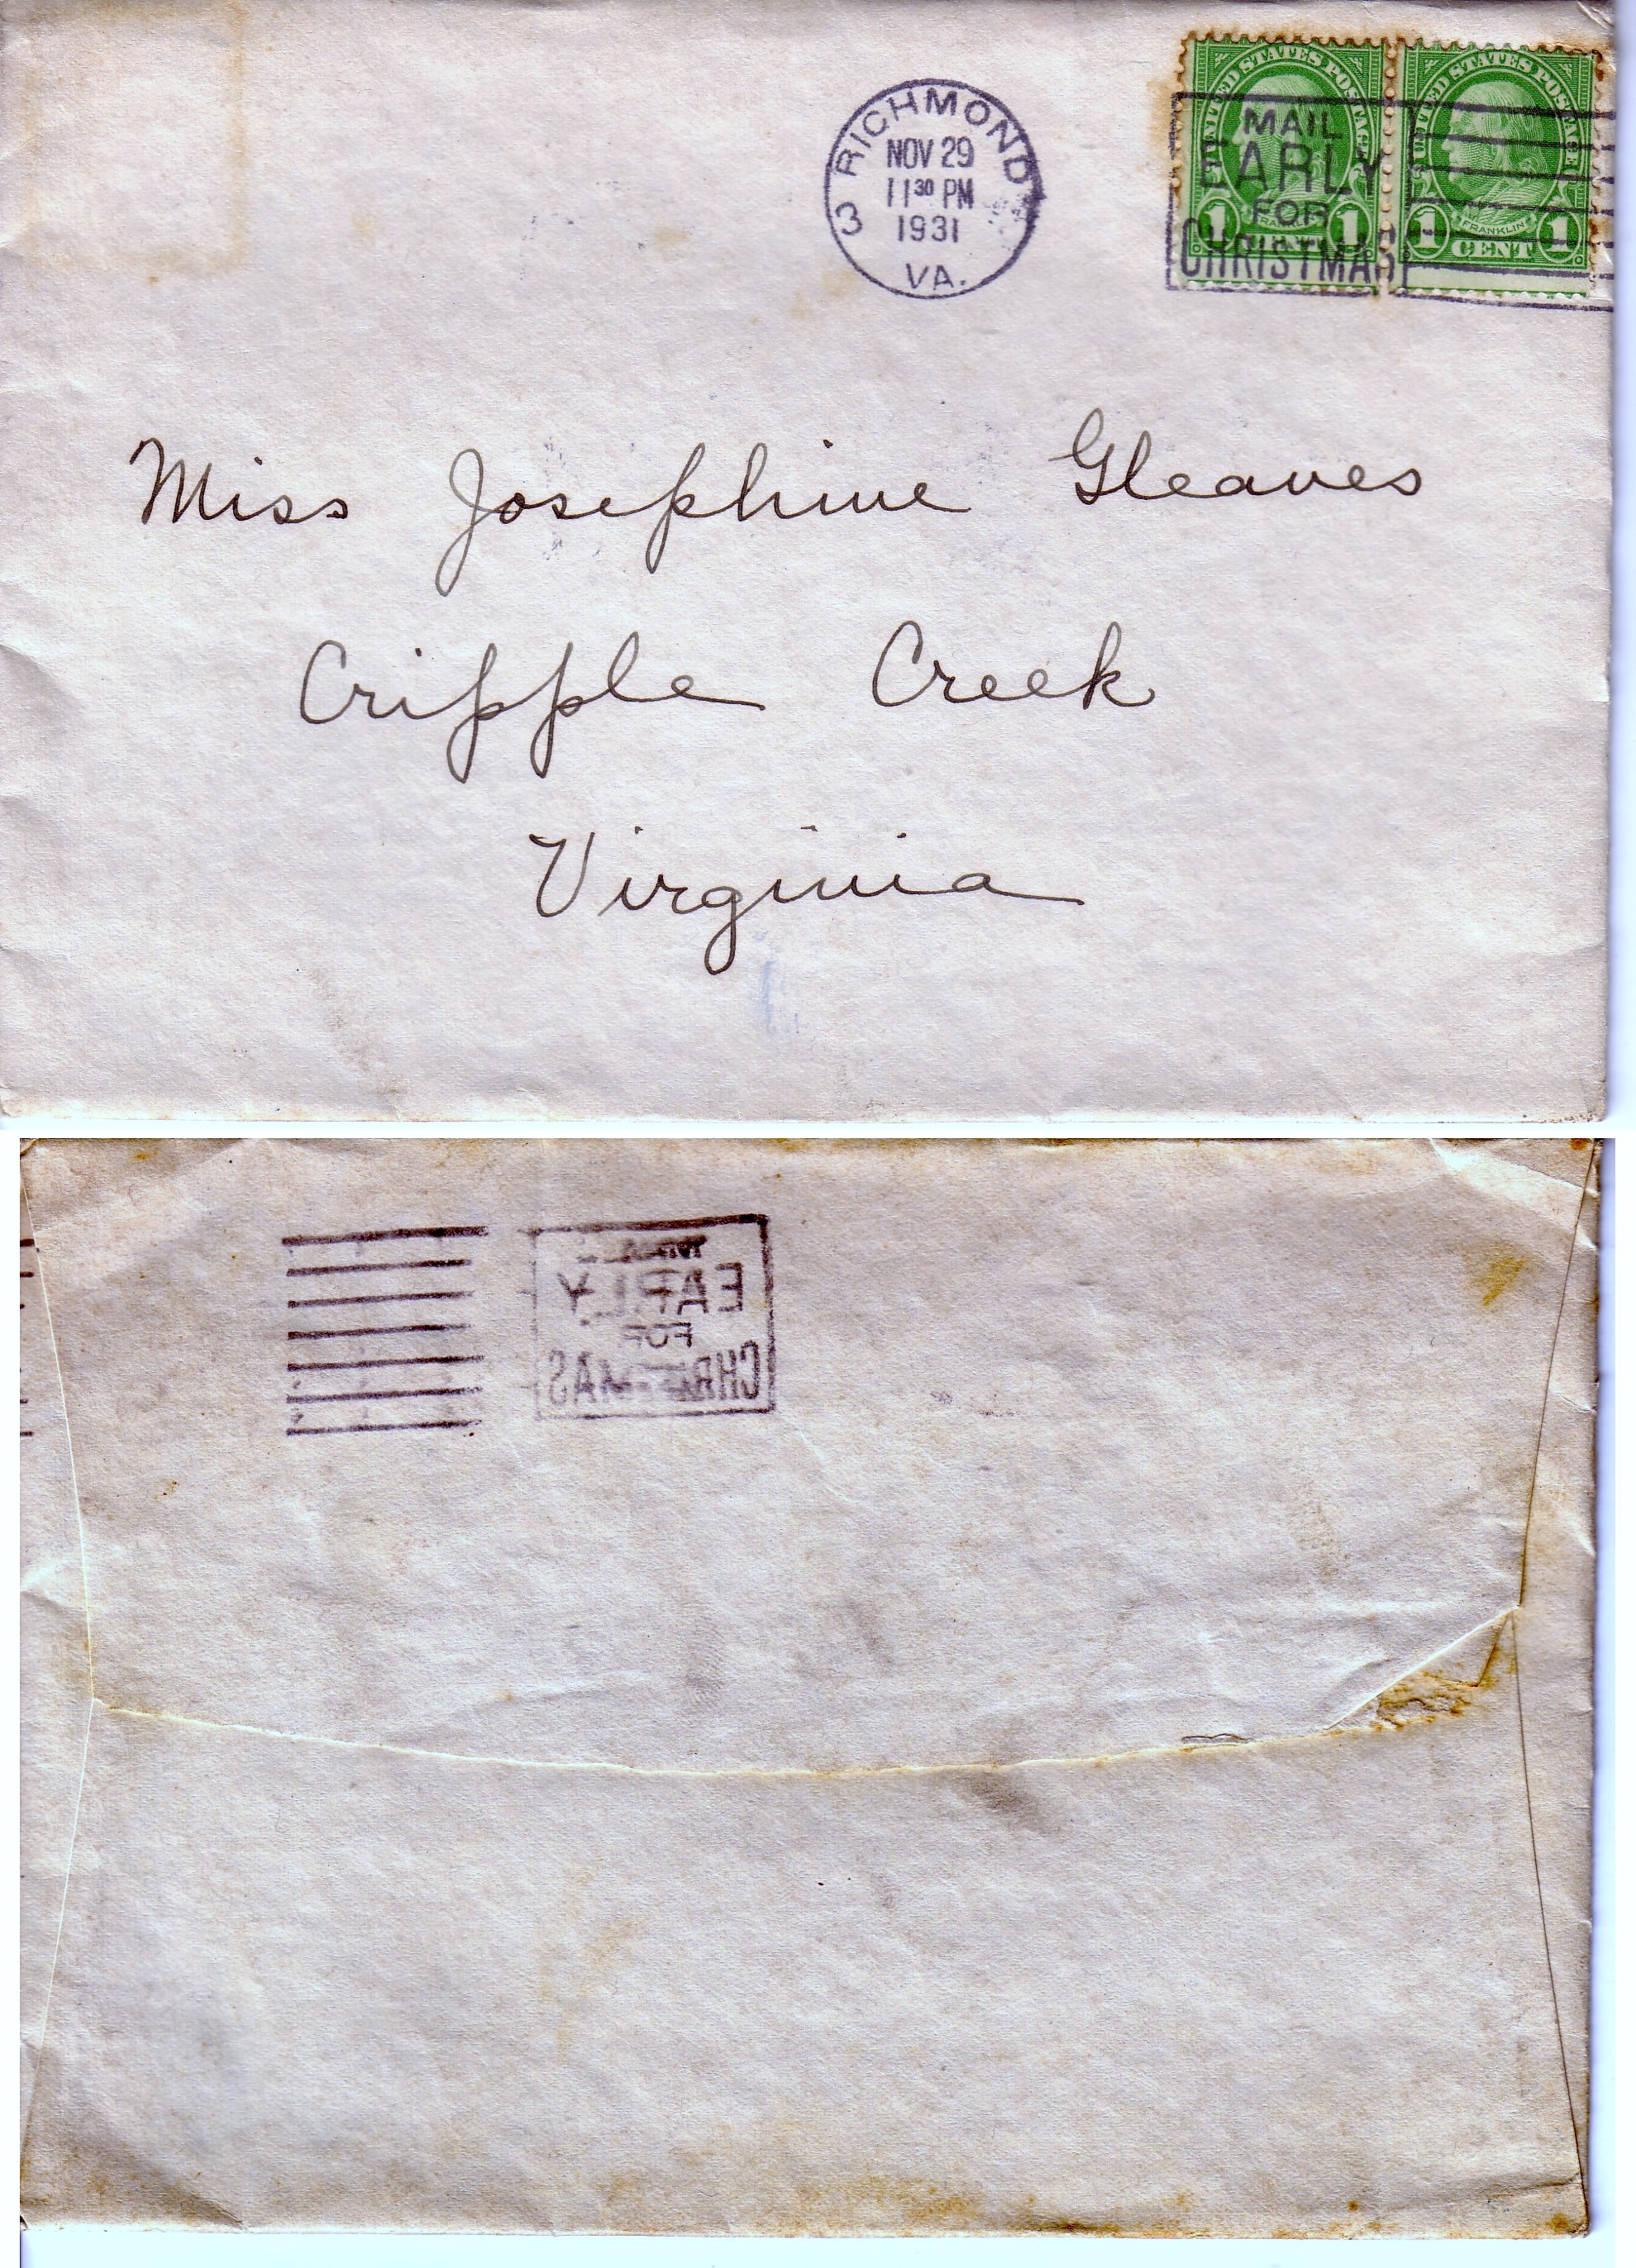 RICHMOND
NOV 29
11 30 PM
1931
VA.
3
UNITED STATES POSTAGE
1 CENT 1
UNITED STATES POSTAGE
FRANKLIN
1 CENT 1
MAIL
EARLY
FOR
CHRISTMAS
Miss Josephine Gleaves
Cripple Creek
Virginia
MAIL
EARLY
FOR
CHRISTMAS